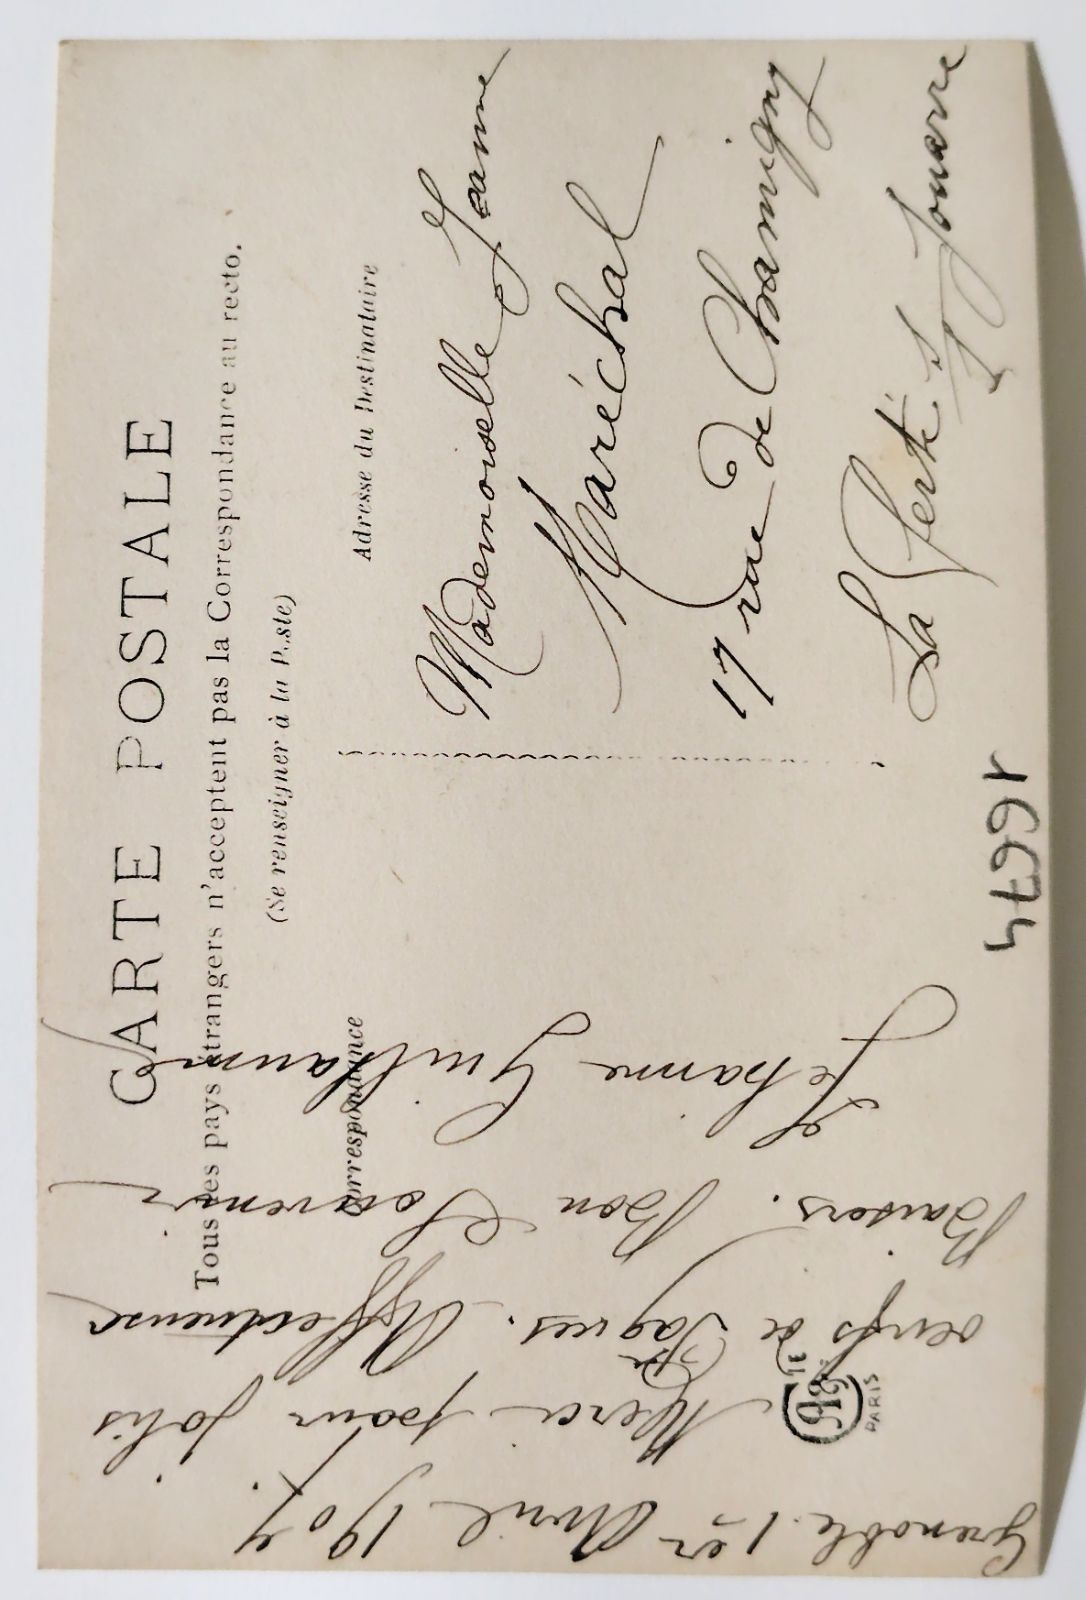 CARTE POSTALE
Tous les pays étrangers n'acceptent pas la Correspondance au recto.
(Se renseigner à la Poste)
Correspondance
Adresse du Destinataire
Mademoiselle Jeanne
Maréchal
17 rue de Chamigny
La Ferté s/s Jouarre
Grenoble 1er Avril 1907.
Merci pour jolis
oeufs de Pâques. Affectueux
Baisers. Bon Souvenir
Jehanne Guillaume
16674
PARIS